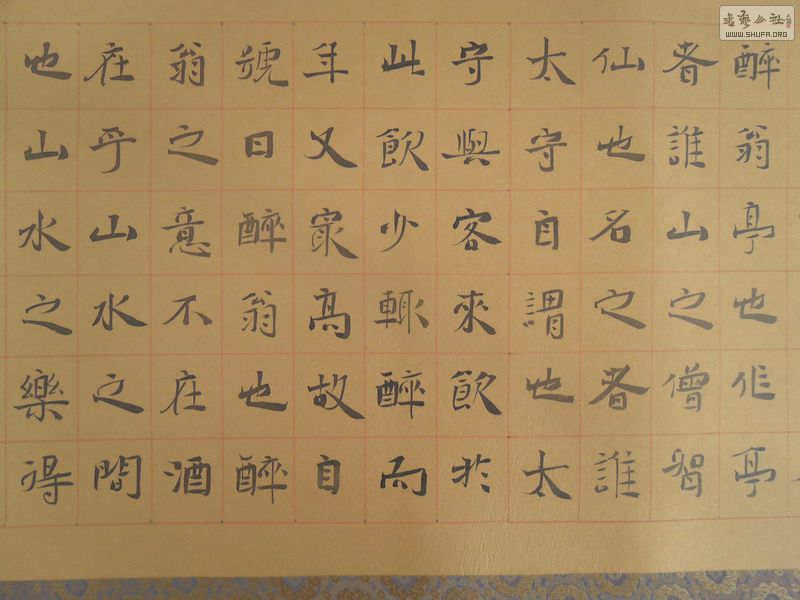 醉翁亭也作亭
者誰山之僧智
仙也名之者誰
太守自謂也太
守與客來飲於
此飲少輒醉而
年又最高故自
號曰醉翁也醉
翁之意不在酒
在乎山水之間
也山水之樂得
書藝公社
WWW.SHUFA.ORG